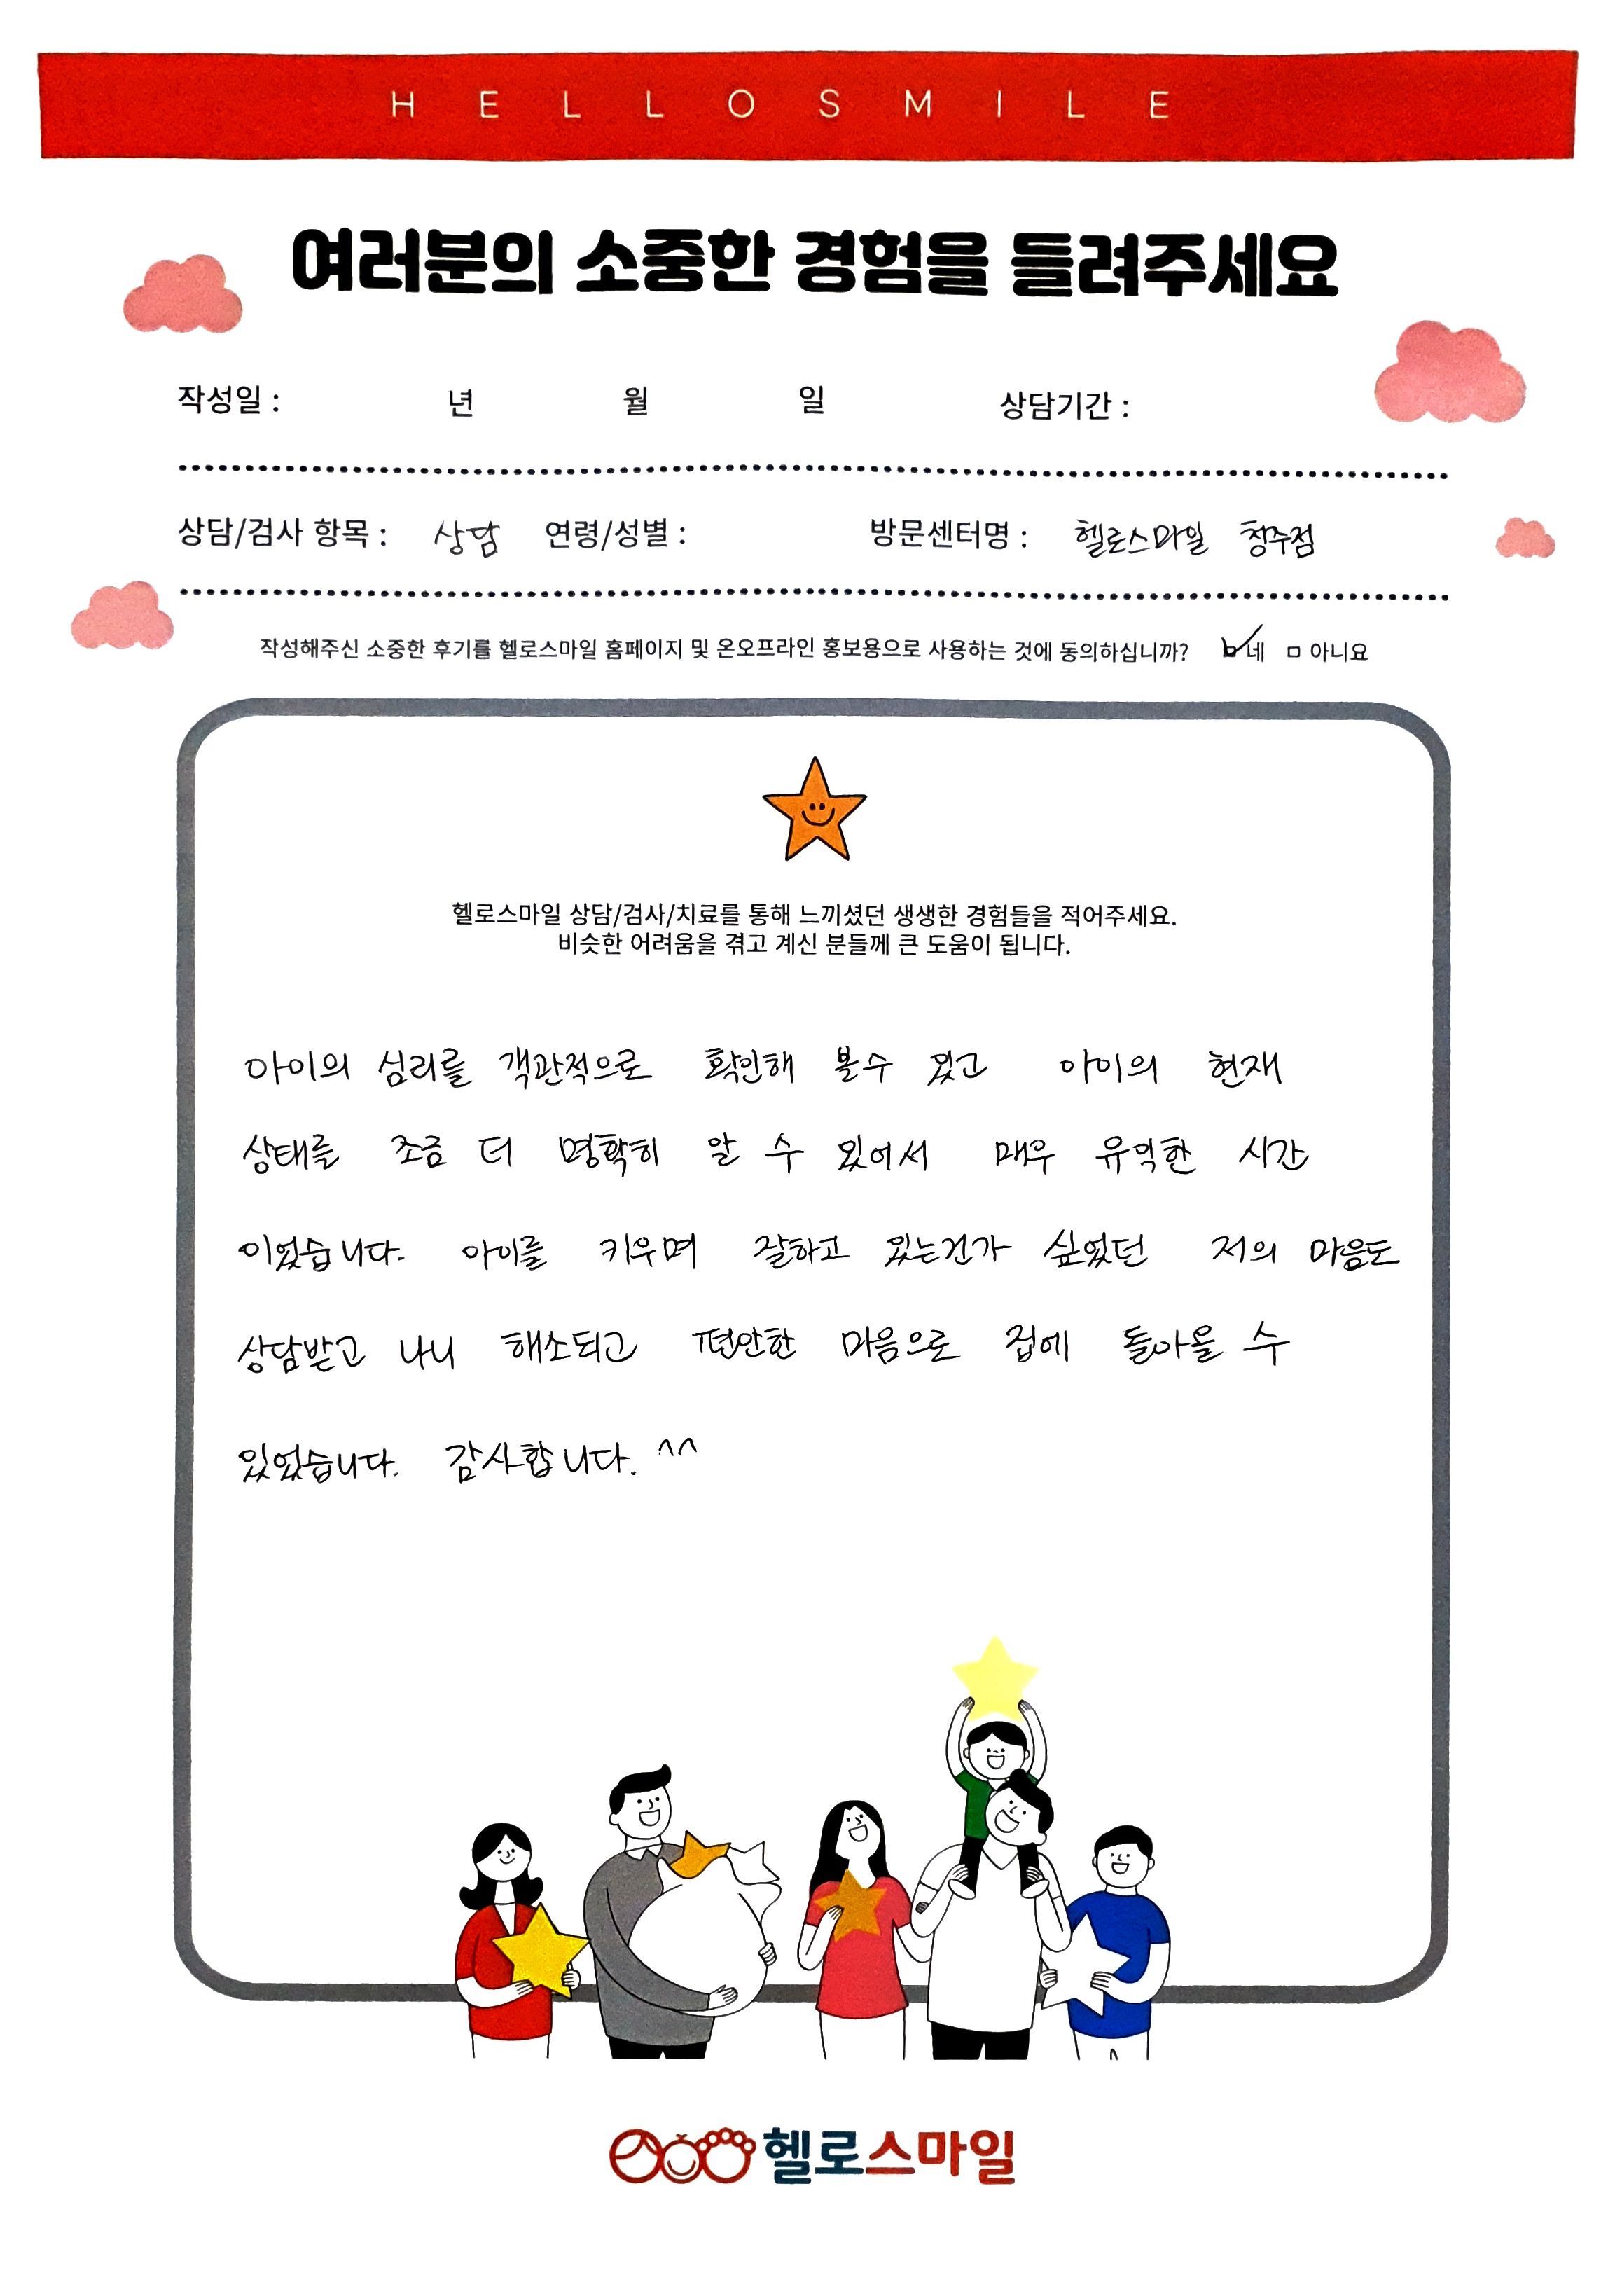 HELLOSMILE
여러분의 소중한 경험을 들려주세요
작성일 : 년 월 일 상담기간 :
상담/검사 항목 : 상담 연령/성별 : 방문센터명 : 헬로스마일 청주점
작성해주신 소중한 후기를 헬로스마일 홈페이지 및 온오프라인 홍보용으로 사용하는 것에 동의하십니까? ☑네 □아니요
헬로스마일 상담/검사/치료를 통해 느끼셨던 생생한 경험들을 적어주세요.
비슷한 어려움을 겪고 계신 분들께 큰 도움이 됩니다.
아이의 심리를 객관적으로 확인해 볼수 있고 아이의 현재
상태를 조금 더 명확히 알 수 있어서 매우 유익한 시간
이었습니다. 아이를 키우며 잘하고 있는건가 싶었던 저의 마음도
상담받고 나니 해소되고 편안한 마음으로 집에 돌아올 수
있었습니다. 감사합니다. ^^
헬로스마일